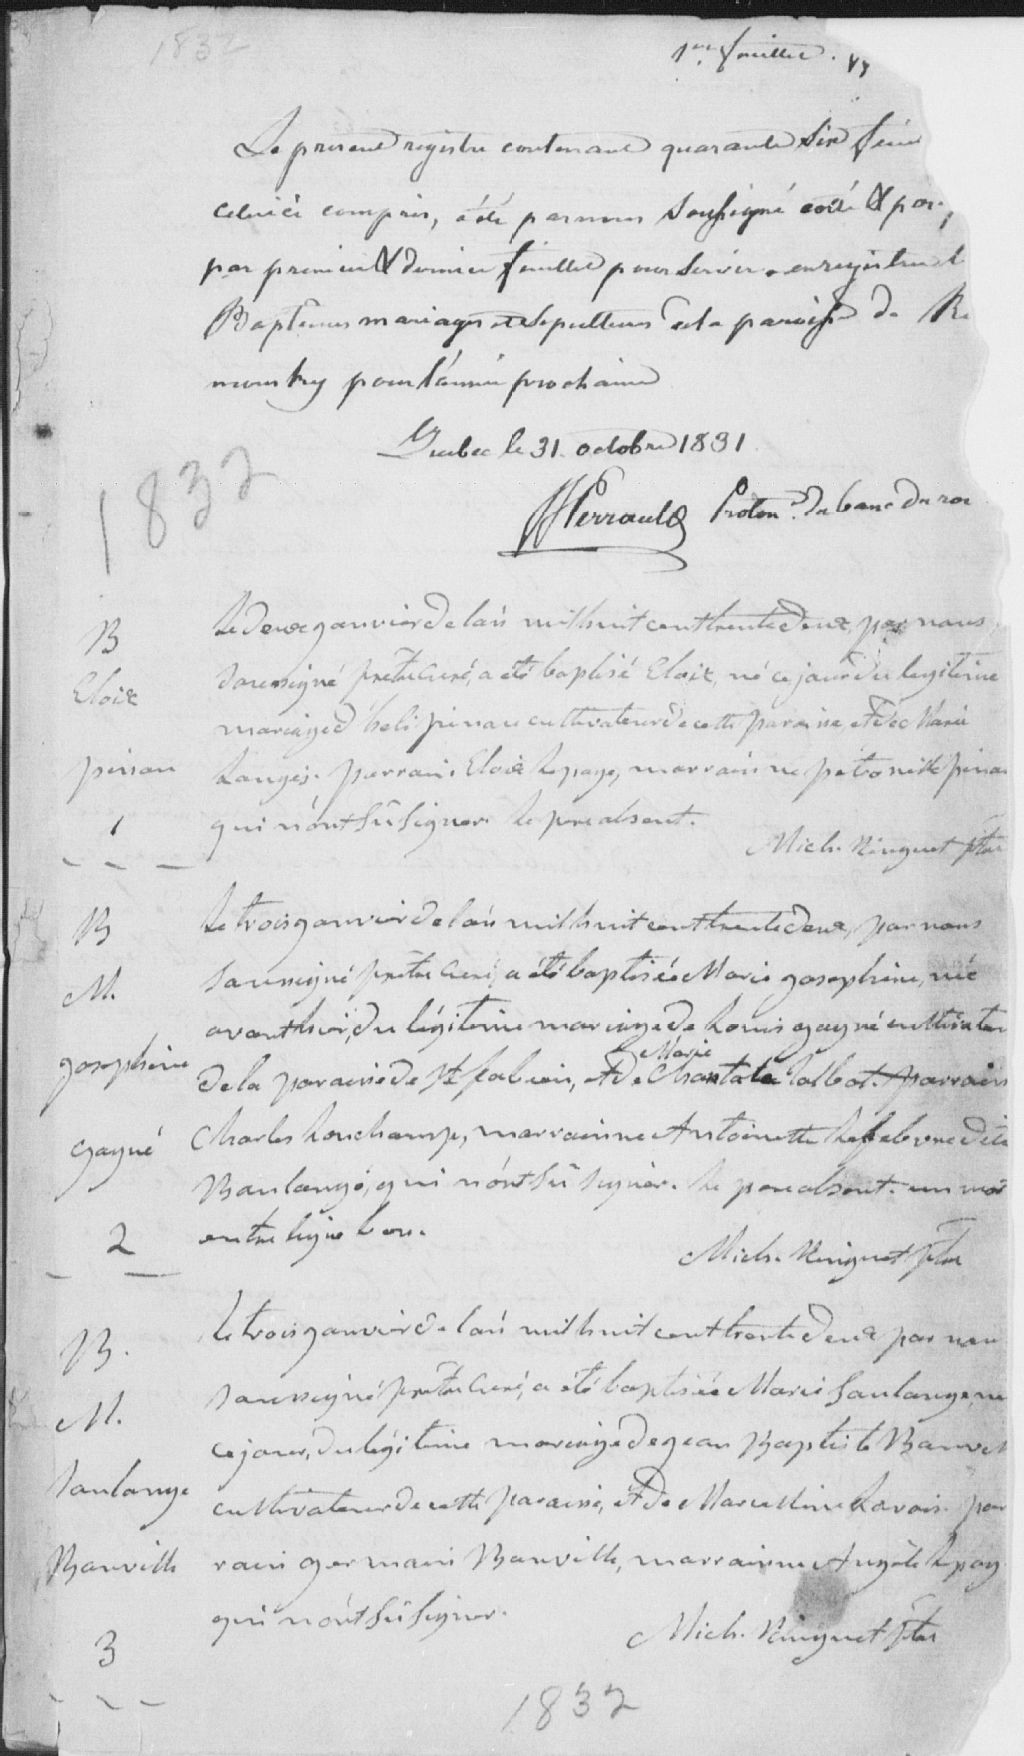 1832
1er feuillet
Le present registre contenant quarante six feui
celuici compris, a été par nous soussigné coté & par
par premier & dernier feuillet pour servir a enregistrer l
Baptêmes mariages et sepultures de la paroisse de Ri
mousky pour l'année prochaine
Quebec le 31. octobre 1831
1832
JFPerrault Proton. du banc du roi
B
Eloix
pinau
1
Le deux janvier de l'an mil huit cent trente deux, par nous
soussigné prêtre Curé, a été baptisé Eloix, né ce jour du legitime
mariage d'heli pinau cultivateur de cette paroisse, et de Marie
Langis. parrain Eloix Lepage, marrainne pétronille pinau
qui n'ont sû signer. le pere absent.
Mich. Ringuet ptre
B
M.
josephine
gagné
2
Le trois janvier de l'an mil huit cent trente deux, par nous
soussigné prêtre Curé, a été baptisée Marie josephine, née
avanthier, du légitime mariage de Louis gagné cultivateur
de la paroisse de St fabien, et de Marie Chantale Talbot. parrain
Charles Louchamp, marrainne Antoinette Lefebvre dite
Boulangé, qui n'ont sû signer. le pere absent. un mot
entre ligne bon.
Mich. Ringuet ptre
B.
M.
Saulange
Banville
3
Le trois janvier de l'an mil huit cent trente deux par nou
soussigné prêtre Curé, a été baptisée Marie Saulange, né
ce jour, du légitime mariage de jean Baptiste Banvil
cultivateur de cette paroisse, et de Marcelline Lavoie. par
rain germain Banville, marrainne Angèle Lepag
qui n'ont sû signer.
Mich. Ringuet ptre
1832